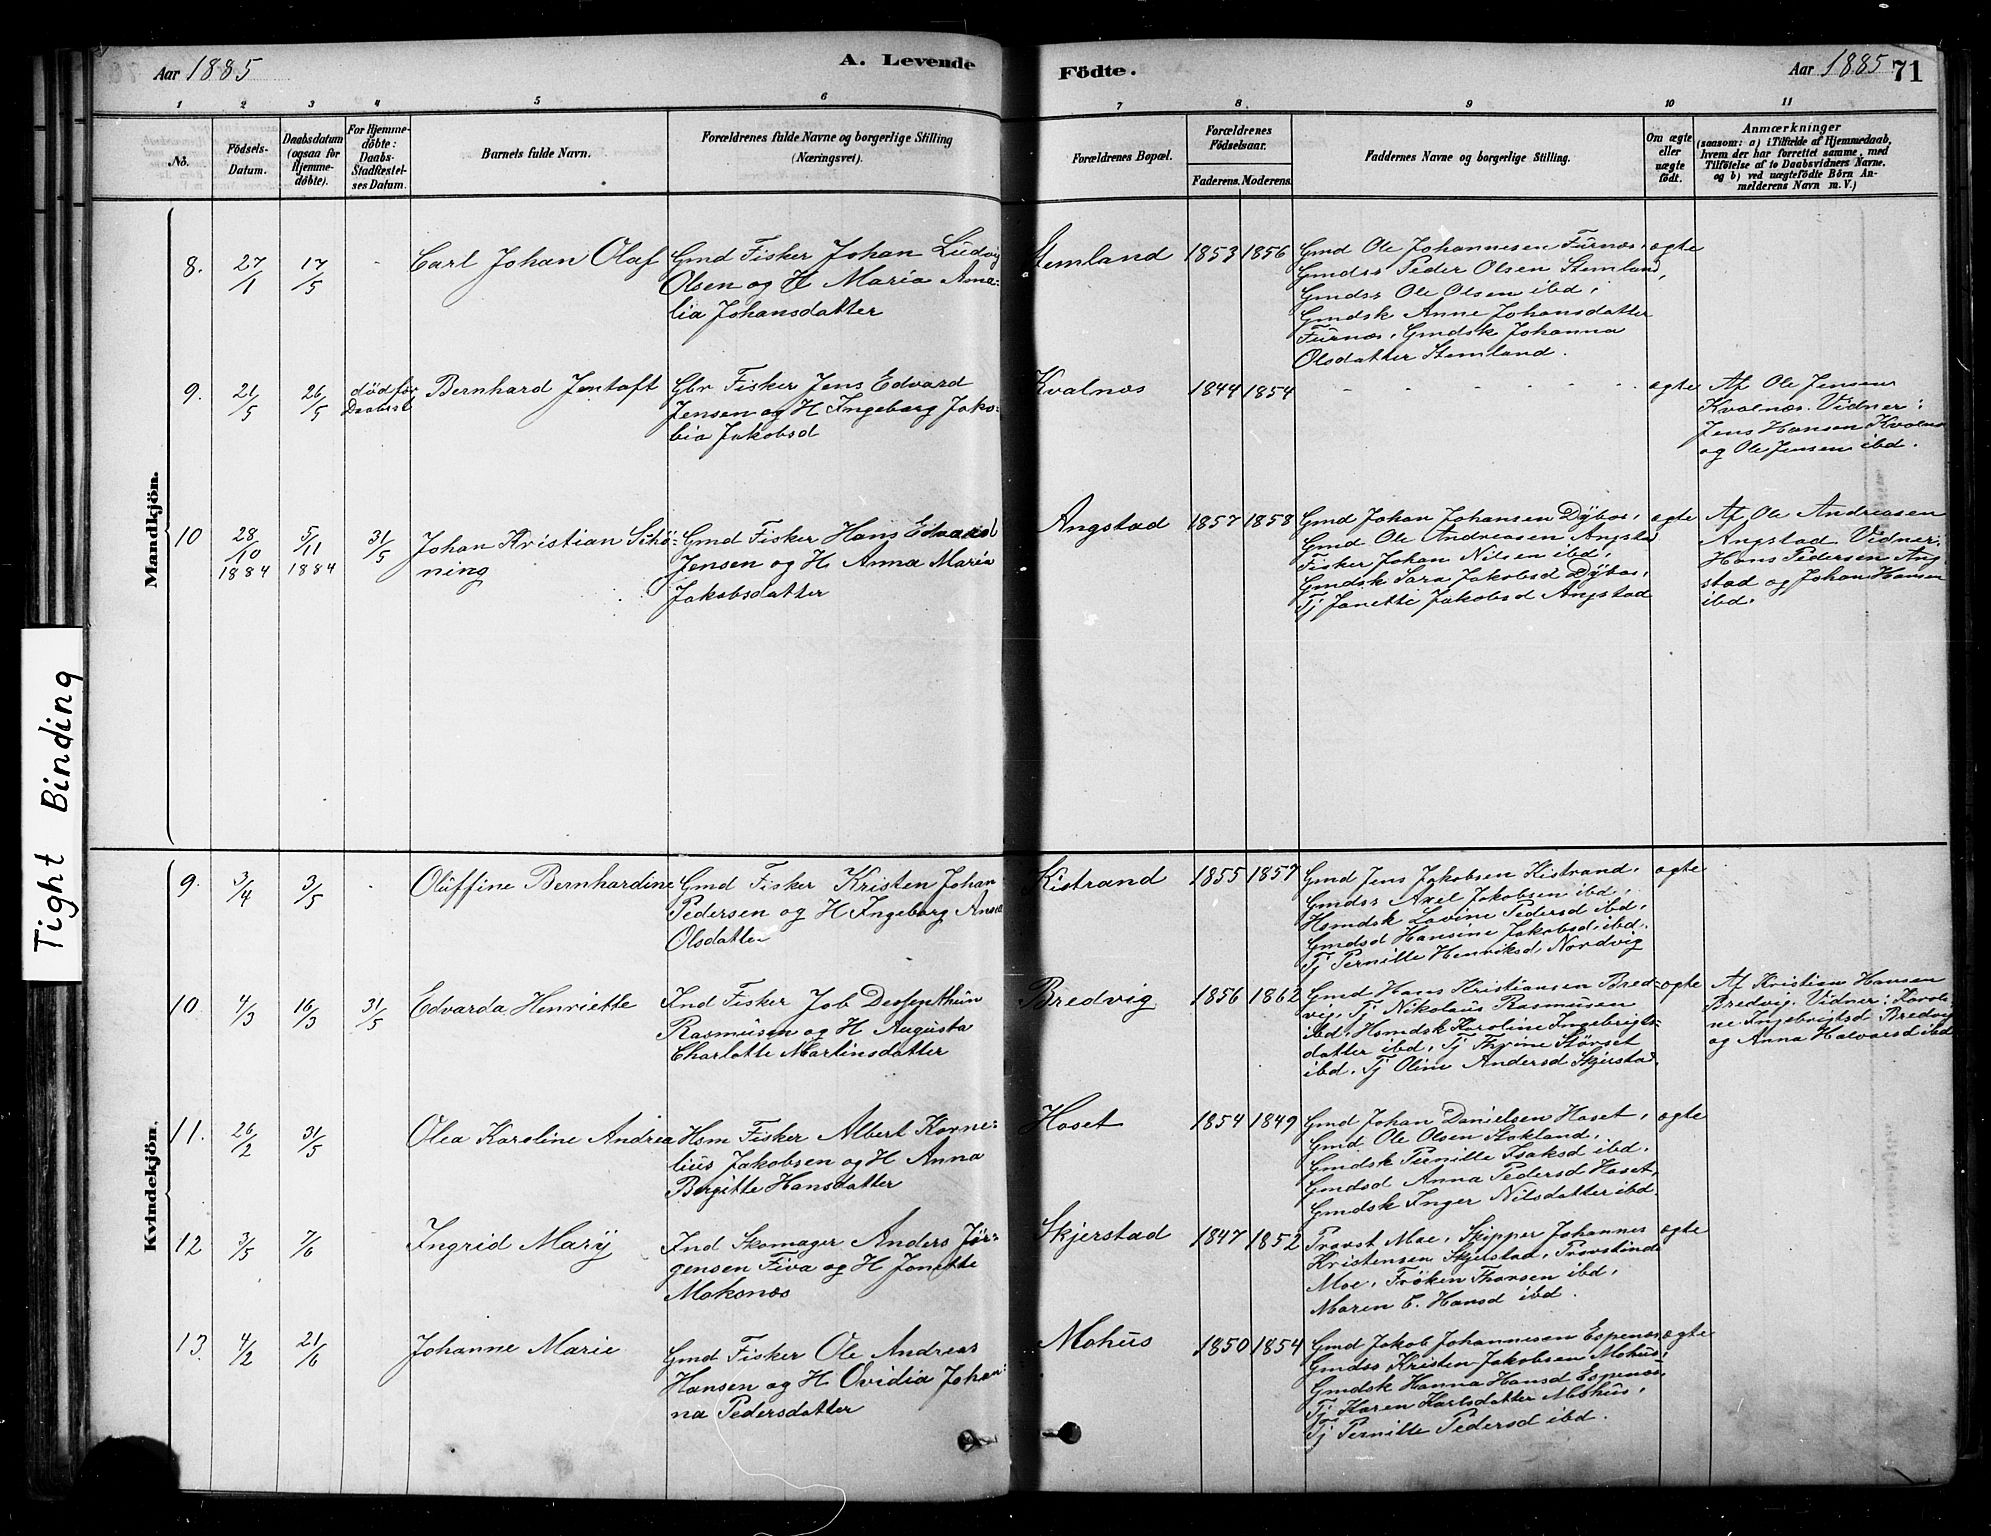 Aar 1885
A. Levende
Födte.
Aar 1885
71
1 2 3 4 5 6 7 8. 9 10 11
No.
Födsels-
Datum.
Daabsdatum
(ogsaa for
Hjemme-
döbte).
For Hjemme-
döbte:
Daabs-
Stadfæstel-
ses Datum.
Barnets fulde Navn.
Forældrenes fulde Navne og borgerlige Stilling
(Næringsvei).
Forældrenes Bopæl.
Forældrenes
Födselsaar.
Faderens. Moderens.
Faddernes Navne og borgerlige Stilling.
Om ægte
eller
uægte
födt.
Anmærkninger
(saasom: a) i Tilfælde af Hjemmedaab,
hvem der har forrettet samme, med
Tilföielse af to Daabsvidners Navne.
og b) ved uægtefödte Börn An-
melderens Navn m. V.)
Mandkjön.
8.
27/1
17/5
-
Carl Johan Olaf
Gmd Fisker Johan Ludvig
Olsen og H Maria Ama-
lia Johansdatter
Stemland
1853
1856
Gmd Ole Johannesen Furnæs,
Gmdss Peder Olsen Stemland,
Gmdss Ole Olsen ibd,
Gmdsk Anne Johansdatter
Furnæs, Gmdsk Johanna
Olsdatter Stemland.
ægte
9.
21/5
26/5
död før
Daabsst
Bernhard Jentoft
Gbr Fisker Jens Edvard
Jensen og H Ingeborg Jako-
bia Jakobsd
Kvalnæs
1844
1854
- - - - - - -
ægte
Af Ole Jensen
Kvalnæs. Vidner:
Jens Hansen Kvalnæs
og Ole Jensen ibd.
10
28/10
1884
5/11
1884
31/5
Johan Kristian Schø-
ning
Gmd Fisker Hans Edvard
Jensen og H Anna Maria
Jakobsdatter
Angstad
1857
1858
Gmd Johan Johansen Dybos,
Gmd Ole Andreasen Angstad
Fisker Johan Nilsen ibd,
Gmdsk Sara Jakobsd Dybos,
Tj Janette Jakobsd Angstad
ægte
Af Ole Andreasen
Angstad Vidner:
Hans Pedersen Ang
stad og Johan Hansen
ibd.
Kvindekjön.
9.
3/4
3/5
-
Oluffine Bernhardine
Gmd Fisker Kristen Johan
Pedersen og H Ingeborg Anna
Olsdatter
Kistrand
1855
1857
Gmd Jens Jakobsen Kistrand,
Gmdss Axel Jakobsen ibd,
Hsmdsk Lovine Pedersd ibd,
Gmdsd Hansine Jakobsd ibd.
Tj Pernille Henriksd, Nordvig
ægte
10.
4/3
16/3
31/5
Edvarda Henriette
Ind Fisker Job
Rasmusen og H Augusta
Charlotte Martinsdatter
Bredvig
1856
1862
Gmd Hans Kristiansen Bred-
vig, Tj Nikolaus Rasmusen
ibd, Hsmdsk Karoline Ingebrigts-
datter ibd, Tj Thrine Störset
ibd. Tj Oline Andersd Skjerstad.
ægte
Af Kristian Hansen
Bredvig. Vidner: Karoli
ne Ingebrigtsd Bredvig
og Anna Halvorsd ibd
11.
26/2
31/5
Olea Karoline Andrea
Hsm Fisker Albert Korne-
lius Jakobsen og H Anna
Birgitte Hansdatter
Hoset
1854
1849
Gmd Johan Danielsen Hoset,
Gmd Ole Olsen Stokland,
Gmdsk Pernille Isaksd ibd.
Gmdsd Anna Pedersd Hoset,
Gmdsk Inger Nilsdatter ibd.
ægte
12
3/5
7/6
Ingrid Mary
Ind Skomager Anders Jör-
gensen Fiva og H Jonette
Moksnæs
Skjerstad
1847
1852
Provst Moe, Skipper Johannes
Kristensen Skjerstad, Provstinde
Moe, Fröken Thorsen ibd,
Maren E. Hansd ibd.
ægte
13.
4/2
21/6
Johanne Marie
Gmd Fisker Ole Andreas
Hansen og H Ovidia Johan-
na Pedersdatter
Mohus
1850
1854
Gmd Jakob Johannesen Espenæs,
Gmdss Kristen Jakobsen Mohus,
Gmdsk Hanna Hansd Espenæs,
Tj Karen Karlsdatter Mohus,
Tj Pernille Pedersd ibd.
ægte
Tight Binding